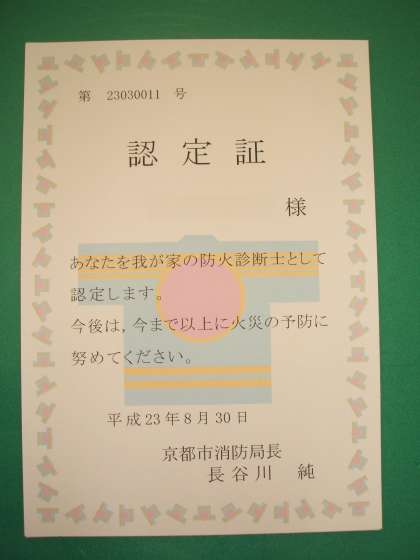 第 23030011 号
認定証
様
あなたを我が家の防火診断士として
認定します。
今後は,今まで以上に火災の予防に
努めてください。
平成23年8月30日
京都市消防局長
長谷川 純